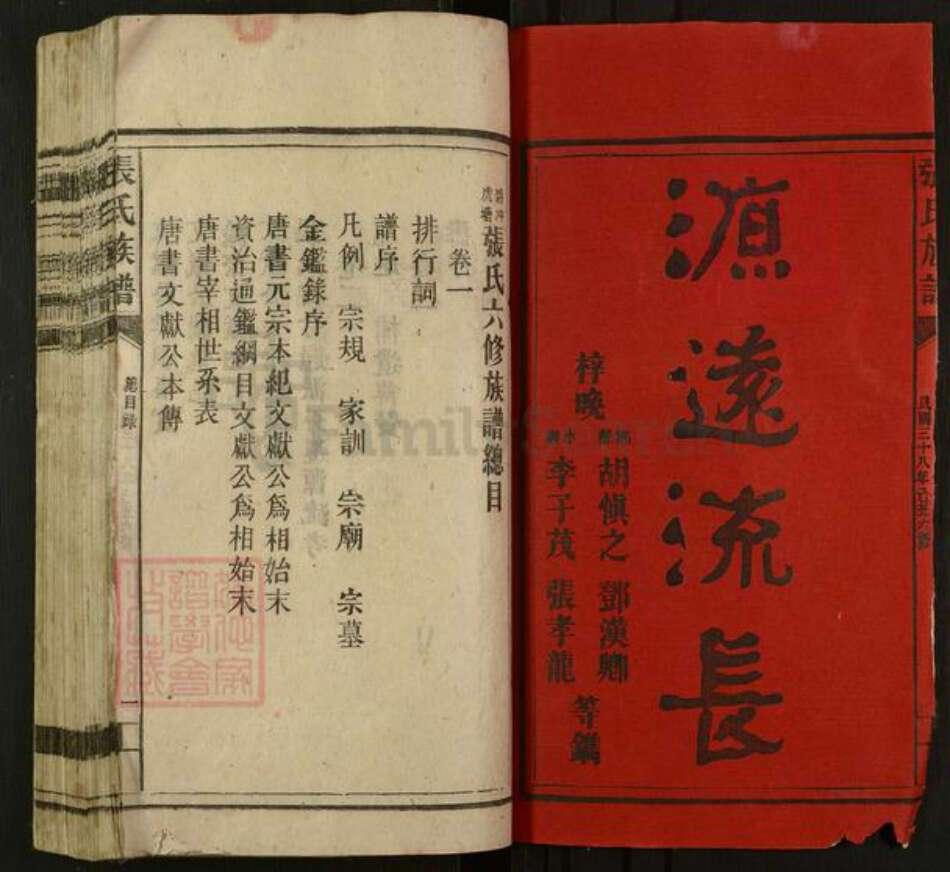 源遠流長
梓晚
胡慎之 鄧漢卿
李子茂 張孝龍
等鐫
張氏族譜
民國三十八年己丑六修
張氏六修族譜總目
卷一
排行詞
譜序
凡例 宗規 家訓 宗廟 宗墓
金鑑錄序
唐書元宗本紀文獻公爲相始末
資治通鑑綱目文獻公爲相始末
唐書宰相世系表
唐書文獻公本傳
張氏族譜
總目錄
一